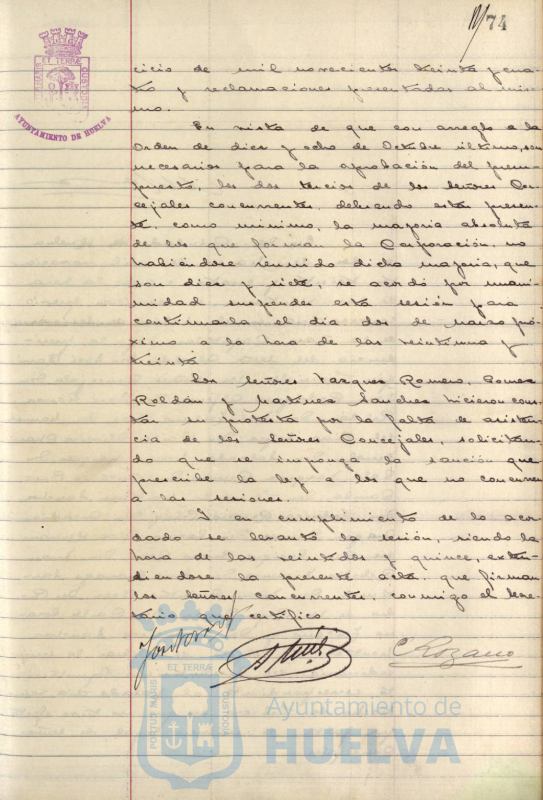 74
ET TERRÆ
CUSTODIA
AYUNTAMIENTO DE HUELVA
cicio de mil novecientos treinta y cua-
tro y reclamaciones presentadas al mis-
mo.
En vista de que con arreglo a la
Orden de diez y ocho de Octubre último, son
necesarios para la aprobación del presu-
puesto, los dos tercios de los señores Con-
cejales concurrentes, debiendo estar presen-
te, como mínimo, la mayoria absoluta
de los que forman la Corporación, no
habiéndose reunido dicha mayoria, que
son diez y siete, se acordó por unani-
midad suspender esta sesión para
continuarla el dia dos de marzo pró-
ximo a la hora de las veintiuna y
treinta
Los señores Vazquez Romero, Gomez
Roldán y Martinez Sanchez hicieron cons-
tar su protesta por la falta de asisten-
cia de los señores Concejales, solicitan-
do que se imponga la sanción que
prescribe la ley a los que no concurren
a las sesiones.
Y en cumplimiento de lo acor-
dado se levantó la sesión, siendo la
hora de las veintidos y quince, exten-
diendose la presente acta que firman
los señores concurrentes, conmigo el Secre-
tario que certifico
C Rozano
PORTUS MARIS
ET TERRÆ
CUSTODIA
Ayuntamiento de
HUELVA